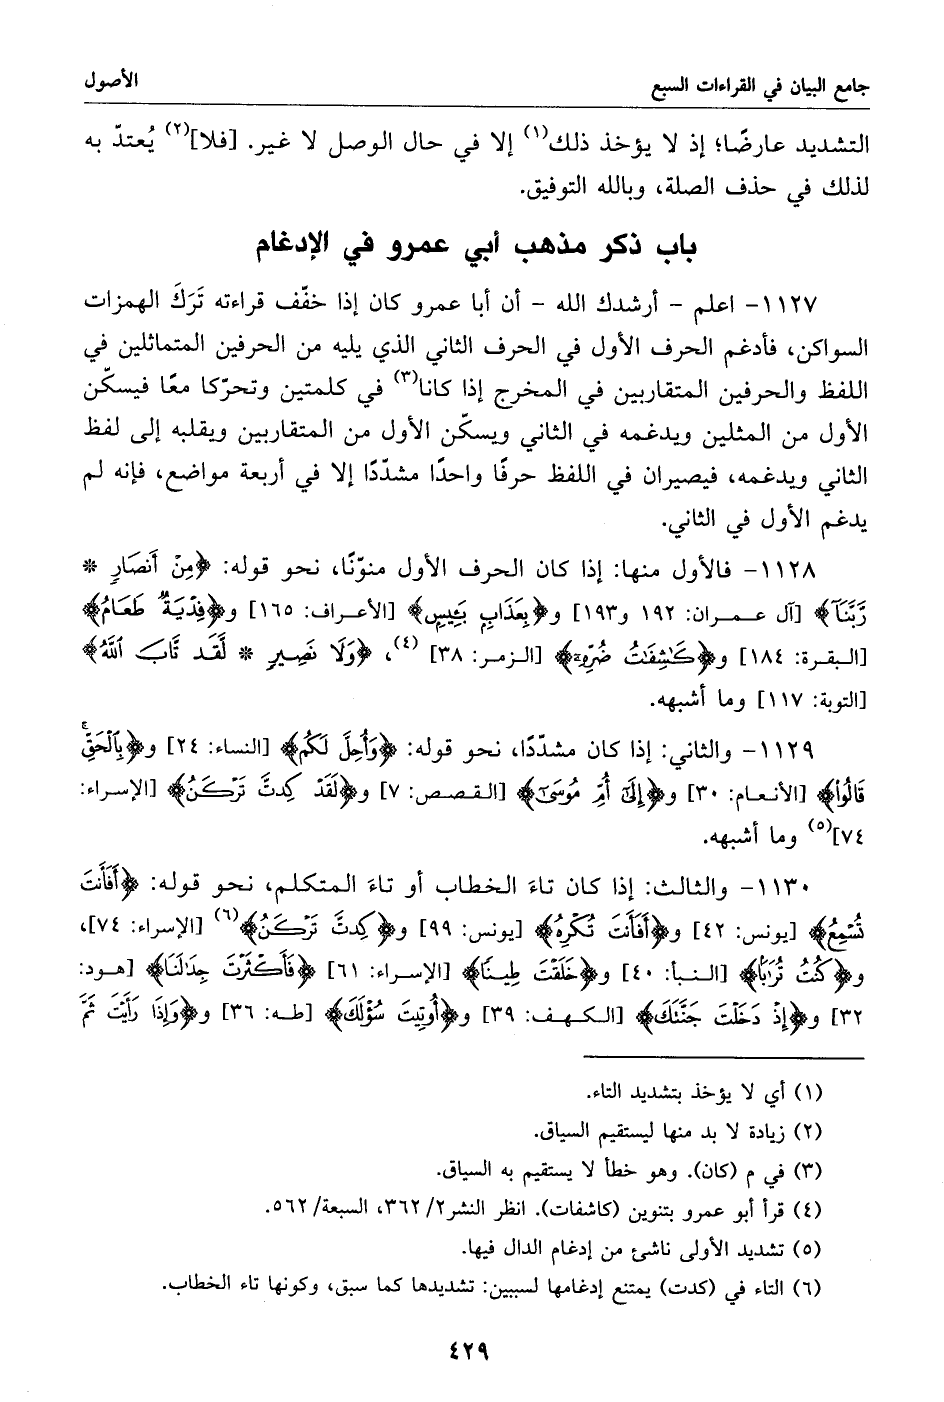 جامع البيان في القراءات السبع الأصول
التشديد عارضًا؛ إذ لا يؤخذ ذلك(١) إلا في حال الوصل لا غير. [فلا](٢) يُعتدّ به
لذلك في حذف الصلة، وبالله التوفيق.
باب ذكر مذهب أبي عمرو في الإدغام
١١٢٧- اعلم - أرشدك الله - أن أبا عمرو كان إذا خفّف قراءته تَرَكَ الهمزات
السواكن، فأدغم الحرف الأول في الحرف الثاني الذي يليه من الحرفين المتماثلين في
اللفظ والحرفين المتقاربين في المخرج إذا كانا(٣) في كلمتين وتحرّكا معًا فيسكّن
الأول من المثلين ويدغمه في الثاني ويسكّن الأول من المتقاربين ويقلبه إلى لفظ
الثاني ويدغمه، فيصيران في اللفظ حرفًا واحدًا مشددًا إلا في أربعة مواضع، فإنه لم
يدغم الأول في الثاني.
١١٢٨- فالأول منها: إذا كان الحرف الأول منوّنًا، نحو قوله: ﴿مِنْ أَنصَارٍ *
رَّبَّنَآ﴾ [آل عمران: ١٩٢ و١٩٣] و﴿بِعَذَابٍ بَئِيسٍ﴾ [الأعراف: ١٦٥] و﴿فِدْيَةٌ طَعَامُ﴾
[البقرة: ١٨٤] و﴿كَٰشِفَٰتُ ضُرِّهِۦٓ﴾ [الزمر: ٣٨](٤)، ﴿وَلَا نَصِيرٍ * لَّقَد تَّابَ ٱللَّهُ﴾
[التوبة: ١١٧] وما أشبهه.
١١٢٩- والثاني: إذا كان مشدّدًا، نحو قوله: ﴿وَأُحِلَّ لَكُم﴾ [النساء: ٢٤] و﴿بِٱلْحَقِّۚ
قَالُوا۟﴾ [الأنعام: ٣٠] و﴿إِلَىٰٓ أُمِّ مُوسَىٰٓ﴾ [القصص: ٧] و﴿لَقَدْ كِدتَّ تَرْكَنُ﴾ [الإسراء:
٧٤](٥) وما أشبهه.
١١٣٠- والثالث: إذا كان تاءَ الخطاب أو تاءَ المتكلم، نحو قوله: ﴿أَفَأَنتَ
تُسْمِعُ﴾ [يونس: ٤٢] و﴿أَفَأَنتَ تُكْرِهُ﴾ [يونس: ٩٩] و﴿كِدتَّ تَرْكَنُ﴾(٦) [الإسراء: ٧٤]،
و﴿كُنتُ تُرَٰبًۢا﴾ [النبأ: ٤٠] و﴿خَلَقْتَ طِينًا﴾ [الإسراء: ٦١] ﴿فَأَكْثَرْتَ جِدَٰلَنَا﴾ [هود:
٣٢] و﴿إِذْ دَخَلْتَ جَنَّتَكَ﴾ [الكهف: ٣٩] و﴿أُوتِيتَ سُؤْلَكَ﴾ [طه: ٣٦] و﴿وَإِذَا رَأَيْتَ ثَمَّ
(١) أي لا يؤخذ بتشديد التاء.
(٢) زيادة لا بد منها ليستقيم السياق.
(٣) في م (كان). وهو خطأ لا يستقيم به السياق.
(٤) قرأ أبو عمرو بتنوين (كاشفات). انظر النشر٢/ ٣٦٢، السبعة/ ٥٦٢.
(٥) تشديد الأولى ناشئ من إدغام الدال فيها.
(٦) التاء في (كدت) يمتنع إدغامها لسببين: تشديدها كما سبق، وكونها تاء الخطاب.
٤٢٩